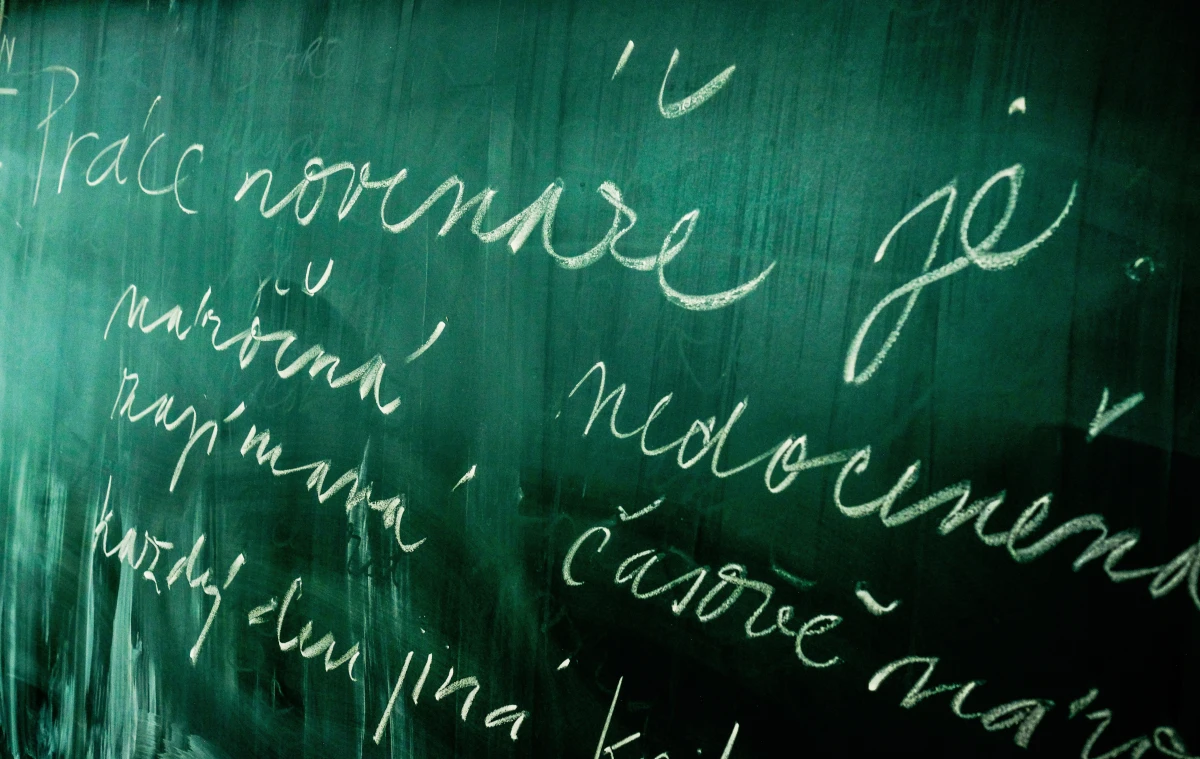 Práce novináře je
náročná
zajímavá
každý den jiná
nedoceněná
časově náro